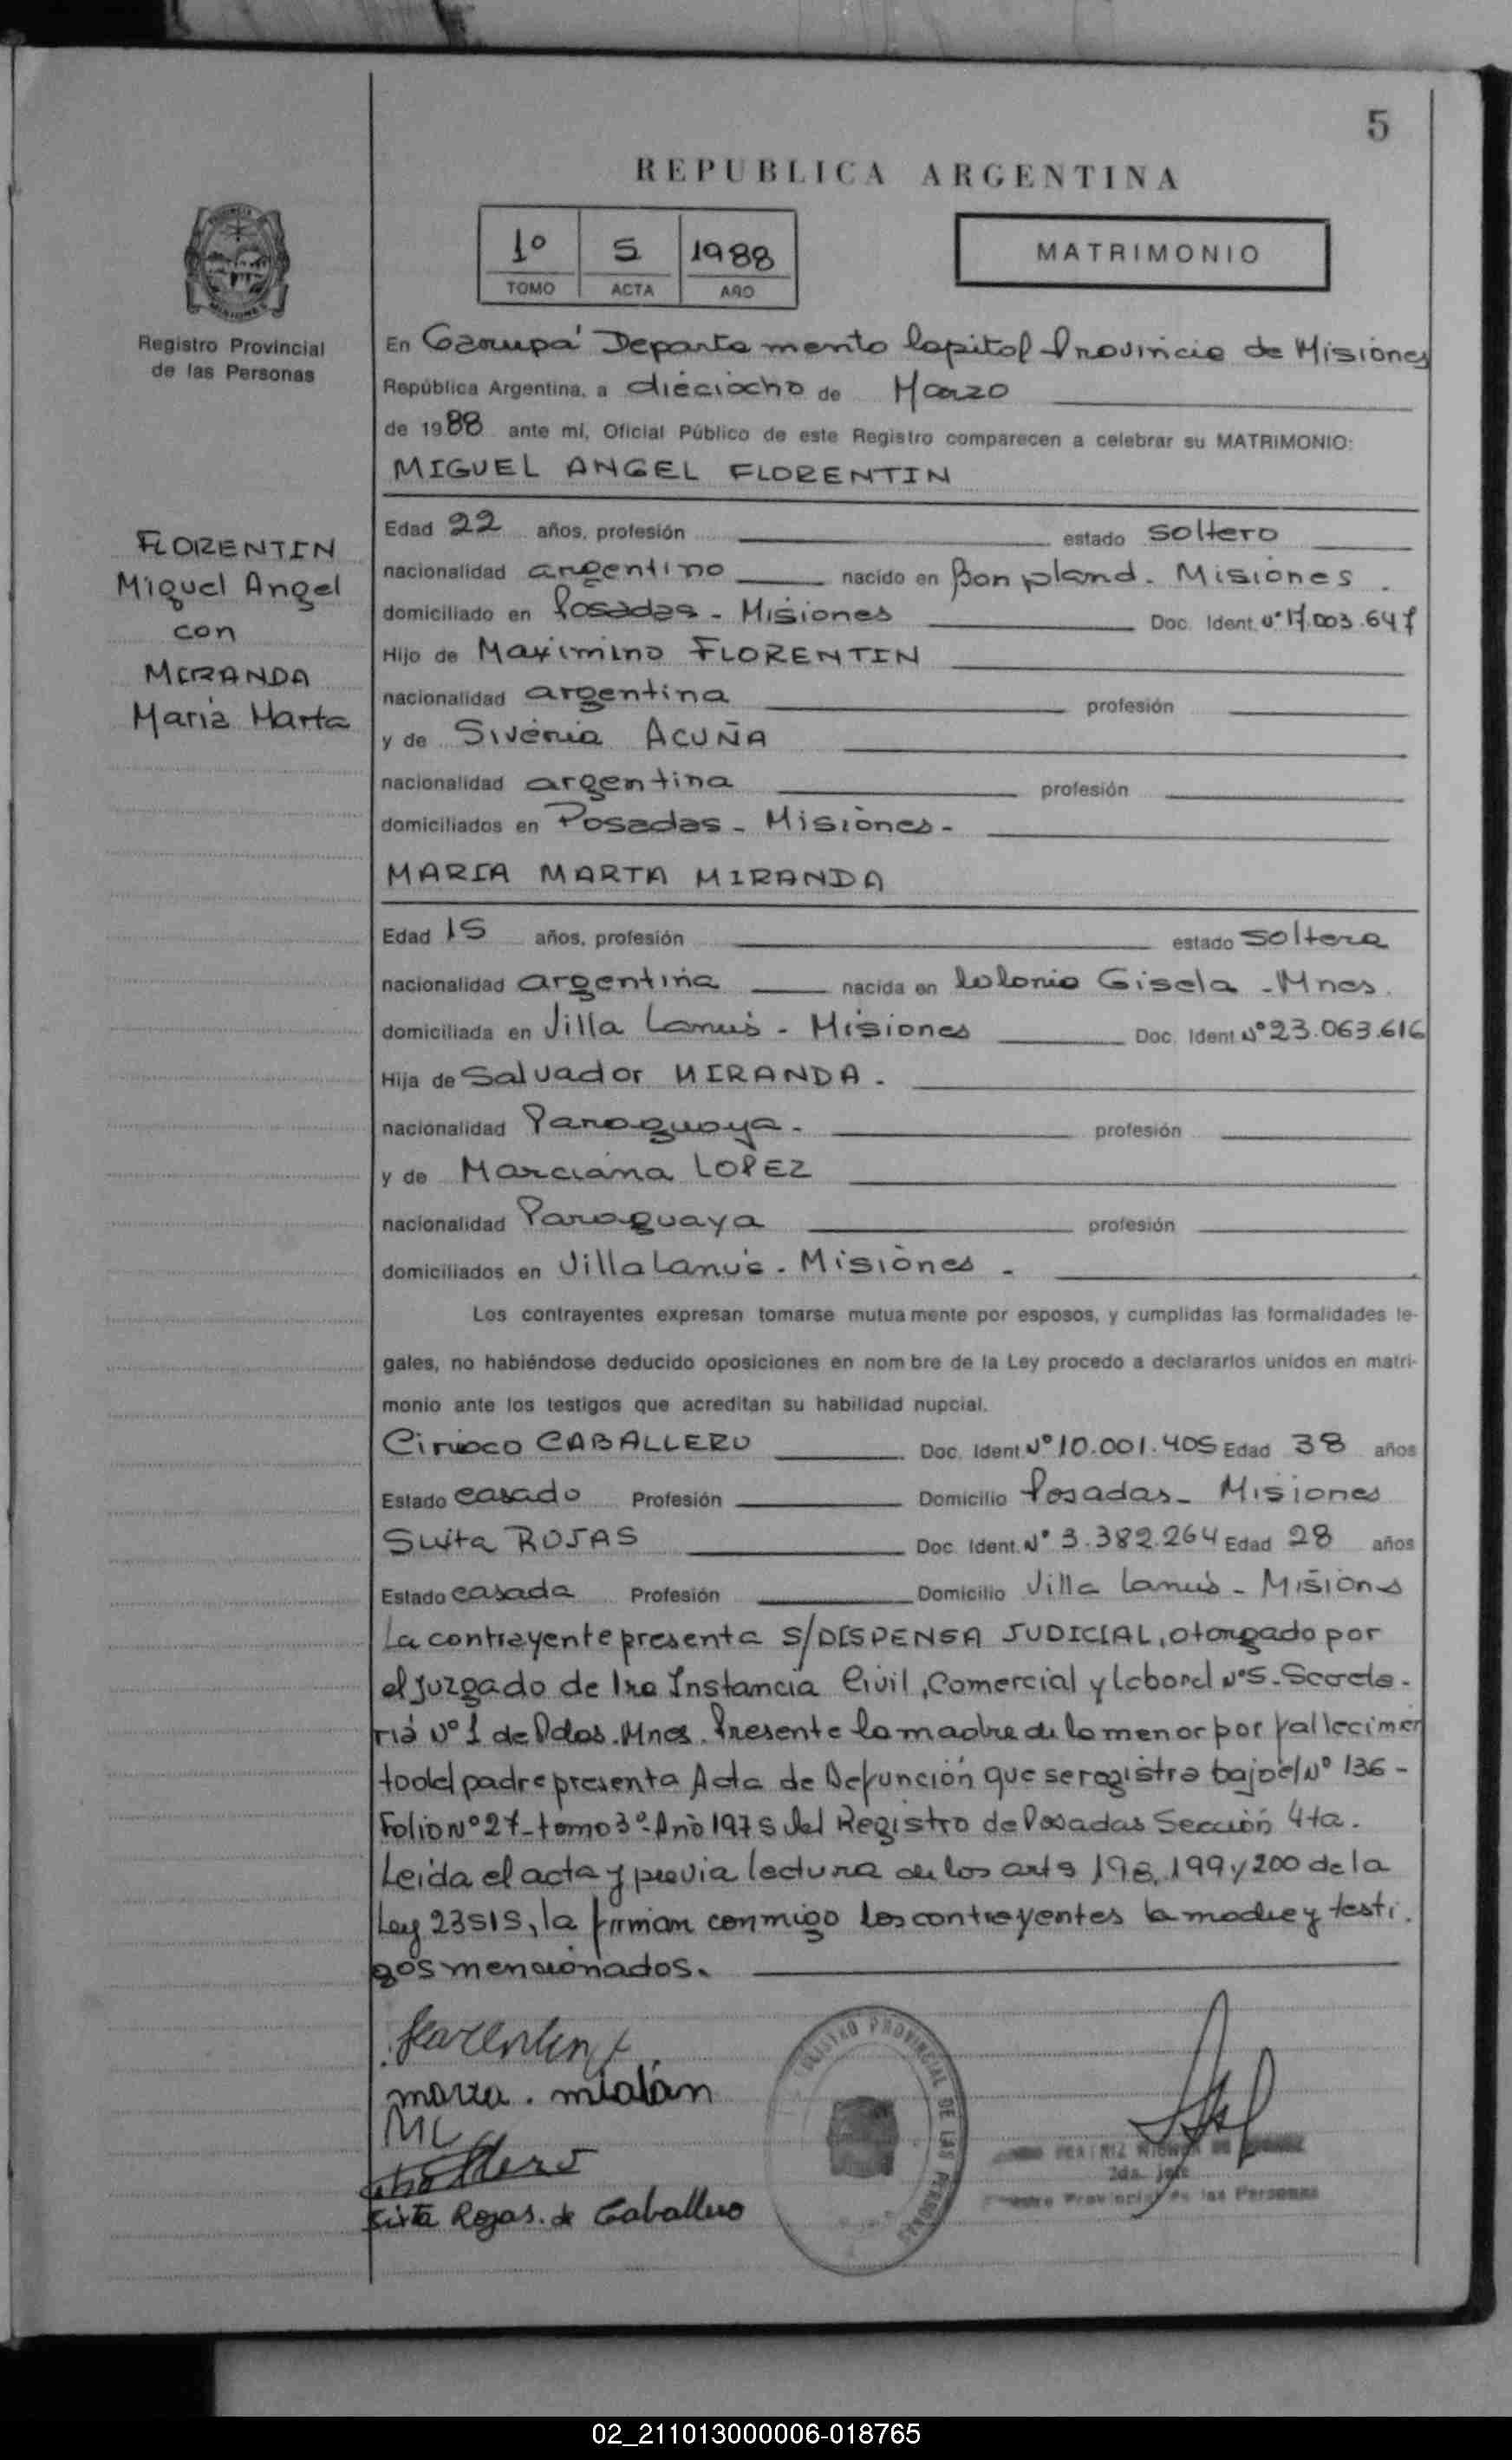 5
REPUBLICA ARGENTINA
1º 5 1988
TOMO ACTA AÑO
MATRIMONIO
Registro Provincial
de las Personas
FLORENTIN
Miguel Angel
con
MIRANDA
Maria Marta
En Garupá Departamento Capital Provincia de Misiones
República Argentina, a dieciocho de Marzo
de 1988 ante mí, Oficial Público de este Registro comparecen a celebrar su MATRIMONIO:
MIGUEL ANGEL FLORENTIN
Edad 22 años, profesión estado soltero
nacionalidad argentino nacido en Bonpland - Misiones.
domiciliado en Posadas - Misiones Doc. Ident. Nº 17.003.647
Hijo de Maximino FLORENTIN
nacionalidad argentina profesión
y de Sivenia ACUÑA
nacionalidad argentina profesión
domiciliados en Posadas - Misiones -
MARIA MARTA MIRANDA
Edad 15 años, profesión estado soltera
nacionalidad argentina nacida en Colonia Gisela - Mnes.
domiciliada en Villa Lanús - Misiones Doc. Ident. Nº 23.063.616
Hija de Salvador MIRANDA.
nacionalidad Paraguaya. profesión
y de Marciana LOPEZ
nacionalidad Paraguaya profesión
domiciliados en Villa Lanús - Misiones -
Los contrayentes expresan tomarse mutuamente por esposos, y cumplidas las formalidades le-
gales, no habiéndose deducido oposiciones en nombre de la Ley procedo a declararlos unidos en matri-
monio ante los testigos que acreditan su habilidad nupcial.
CABALLERO Doc. Ident. Nº 10.001.405 Edad 38 años
Estado casado Profesión Domicilio Posadas - Misiones
ROJAS Doc. Ident. Nº 3.382.264 Edad 28 años
Estado casada Profesión Domicilio Villa Lanús - Misiones
La contrayente presenta S/DISPENSA JUDICIAL, otorgado por
el juzgado de 1ra Instancia Civil, Comercial y Laboral Nº5 - Secreta-
ria Nº 1 de Pdas. Mnes. Presente la madre de la menor por fallecimien
to del padre presenta Acta de Defunción que se registra bajo el Nº 136 -
Folio Nº 27 - tomo 3º - Año 1975 del Registro de Posadas Sección 4ta.
Leida el acta y previa lectura de los arts 198, 199 y 200 de la
Ley 23515, la firman conmigo los contrayentes la madre y testi.
gos mencionados.
Florentin
ML
Sixta Rojas. de Caballero
REGISTRO PROVINCIAL DE LAS PERSONAS
BEATRIZ
2da. Jefe
Registro Provincial de las Personas
02_211013000006-018765